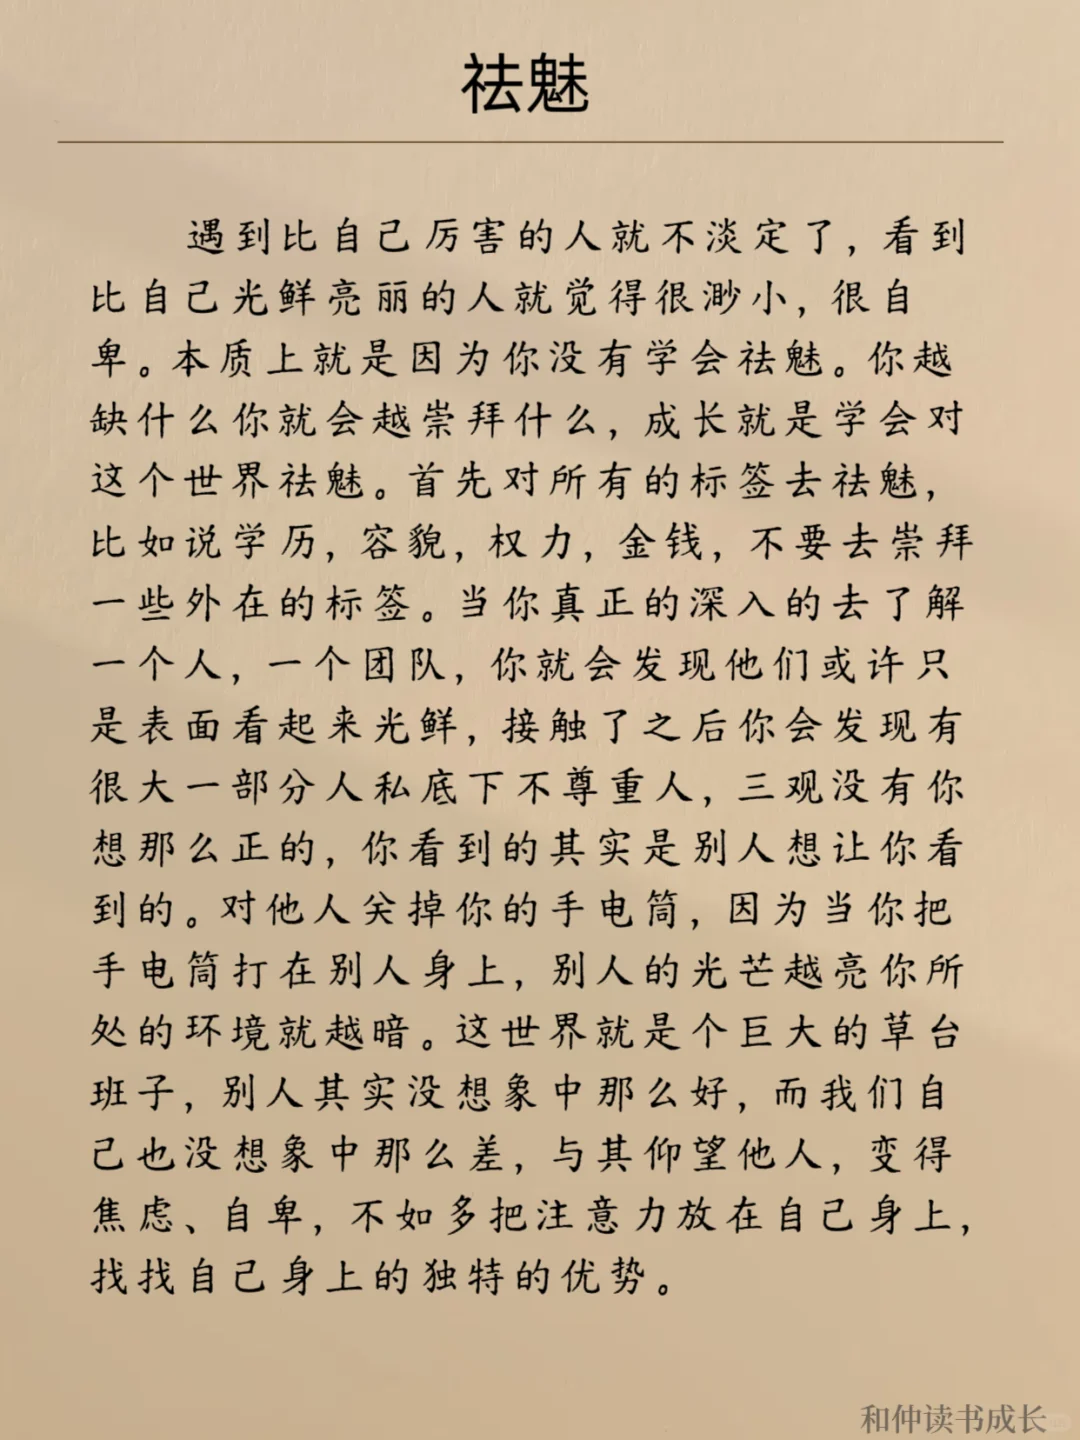 祛魅
遇到比自己厉害的人就不淡定了，看到
比自己光鲜亮丽的人就觉得很渺小，很自
卑。本质上就是因为你没有学会祛魅。你越
缺什么你就会越崇拜什么，成长就是学会对
这个世界祛魅。首先对所有的标签去祛魅，
比如说学历，容貌，权力，金钱，不要去崇拜
一些外在的标签。当你真正的深入的去了解
一个人，一个团队，你就会发现他们或许只
是表面看起来光鲜，接触了之后你会发现有
很大一部分人私底下不尊重人，三观没有你
想那么正的，你看到的其实是别人想让你看
到的。对他人关掉你的手电筒，因为当你把
手电筒打在别人身上，别人的光芒越亮你所
处的环境就越暗。这世界就是个巨大的草台
班子，别人其实没想象中那么好，而我们自
己也没想象中那么差，与其仰望他人，变得
焦虑、自卑，不如多把注意力放在自己身上，
找找自己身上的独特的优势。
和仲读书成长